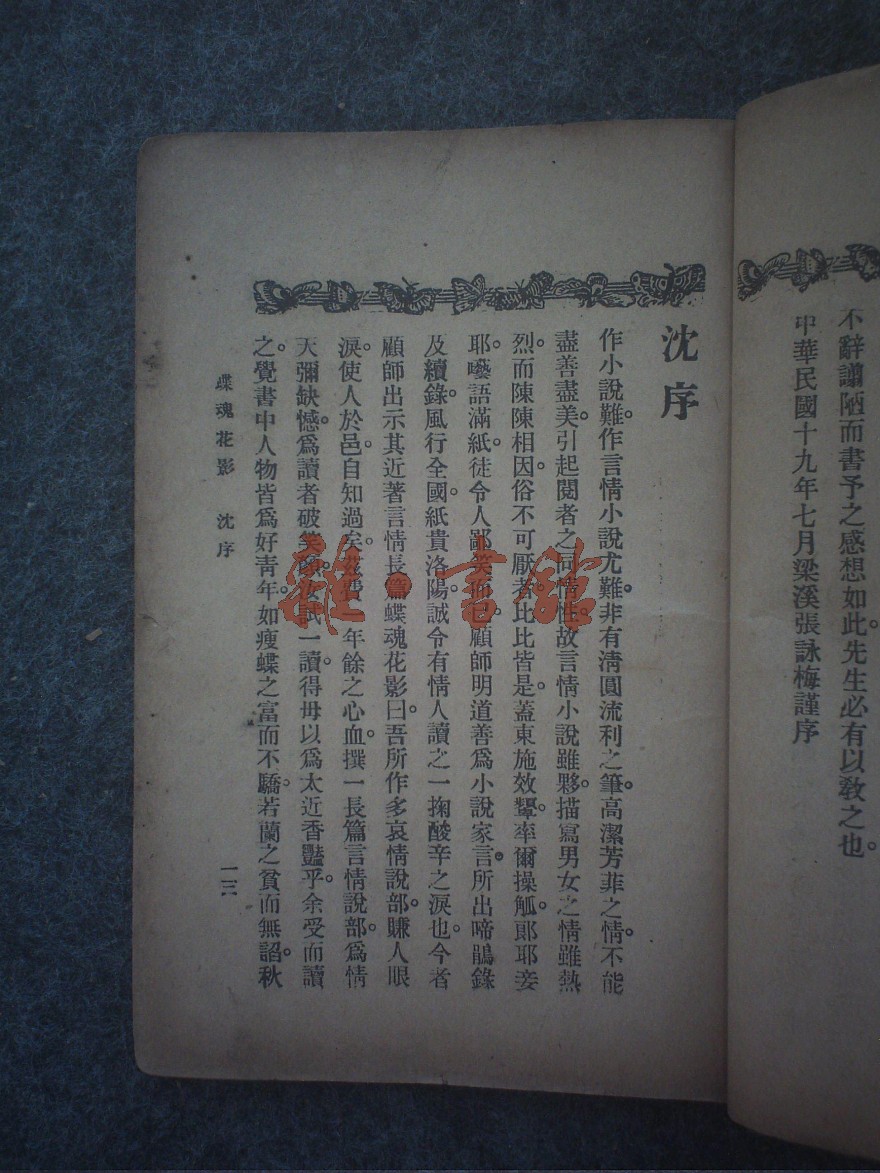 不辭譾陋而書予之感想如此。先生必有以敎之也。
中華民國十九年七月梁溪張詠梅謹序
沈序
作小說難。作言情小說尤難。非有淸圓流利之筆。高潔芳菲之情。不能
盡善盡美。引起閱者之同情性。故言情小說雖夥。描寫男女之情雖熱
烈。而陳陳相因。俗不可厭者。比比皆是。蓋東施效顰。率爾操觚。郞耶妾
耶。囈語滿紙。徒令人鄙笑而已。顧師明道善爲小說家言。所出啼鵑錄
及續錄。風行全國。紙貴洛陽。誠令有情人讀之一掬酸辛之淚也。今者
顧師出示其近著言情長篇蝶魂花影曰。吾所作多哀情說部。賺人眼
淚。使人於邑。自知過矣。茲費一年餘之心血。撰一長篇言情說部。爲情
天彌缺憾。爲讀者破笑顏。汝試一讀。得毋以爲太近香豔乎。余受而讀
之。覺書中人物皆爲好靑年。如瘦蝶之富而不驕。若蘭之貧而無諂。秋
蝶魂花影 沈序
一三
雜·書館